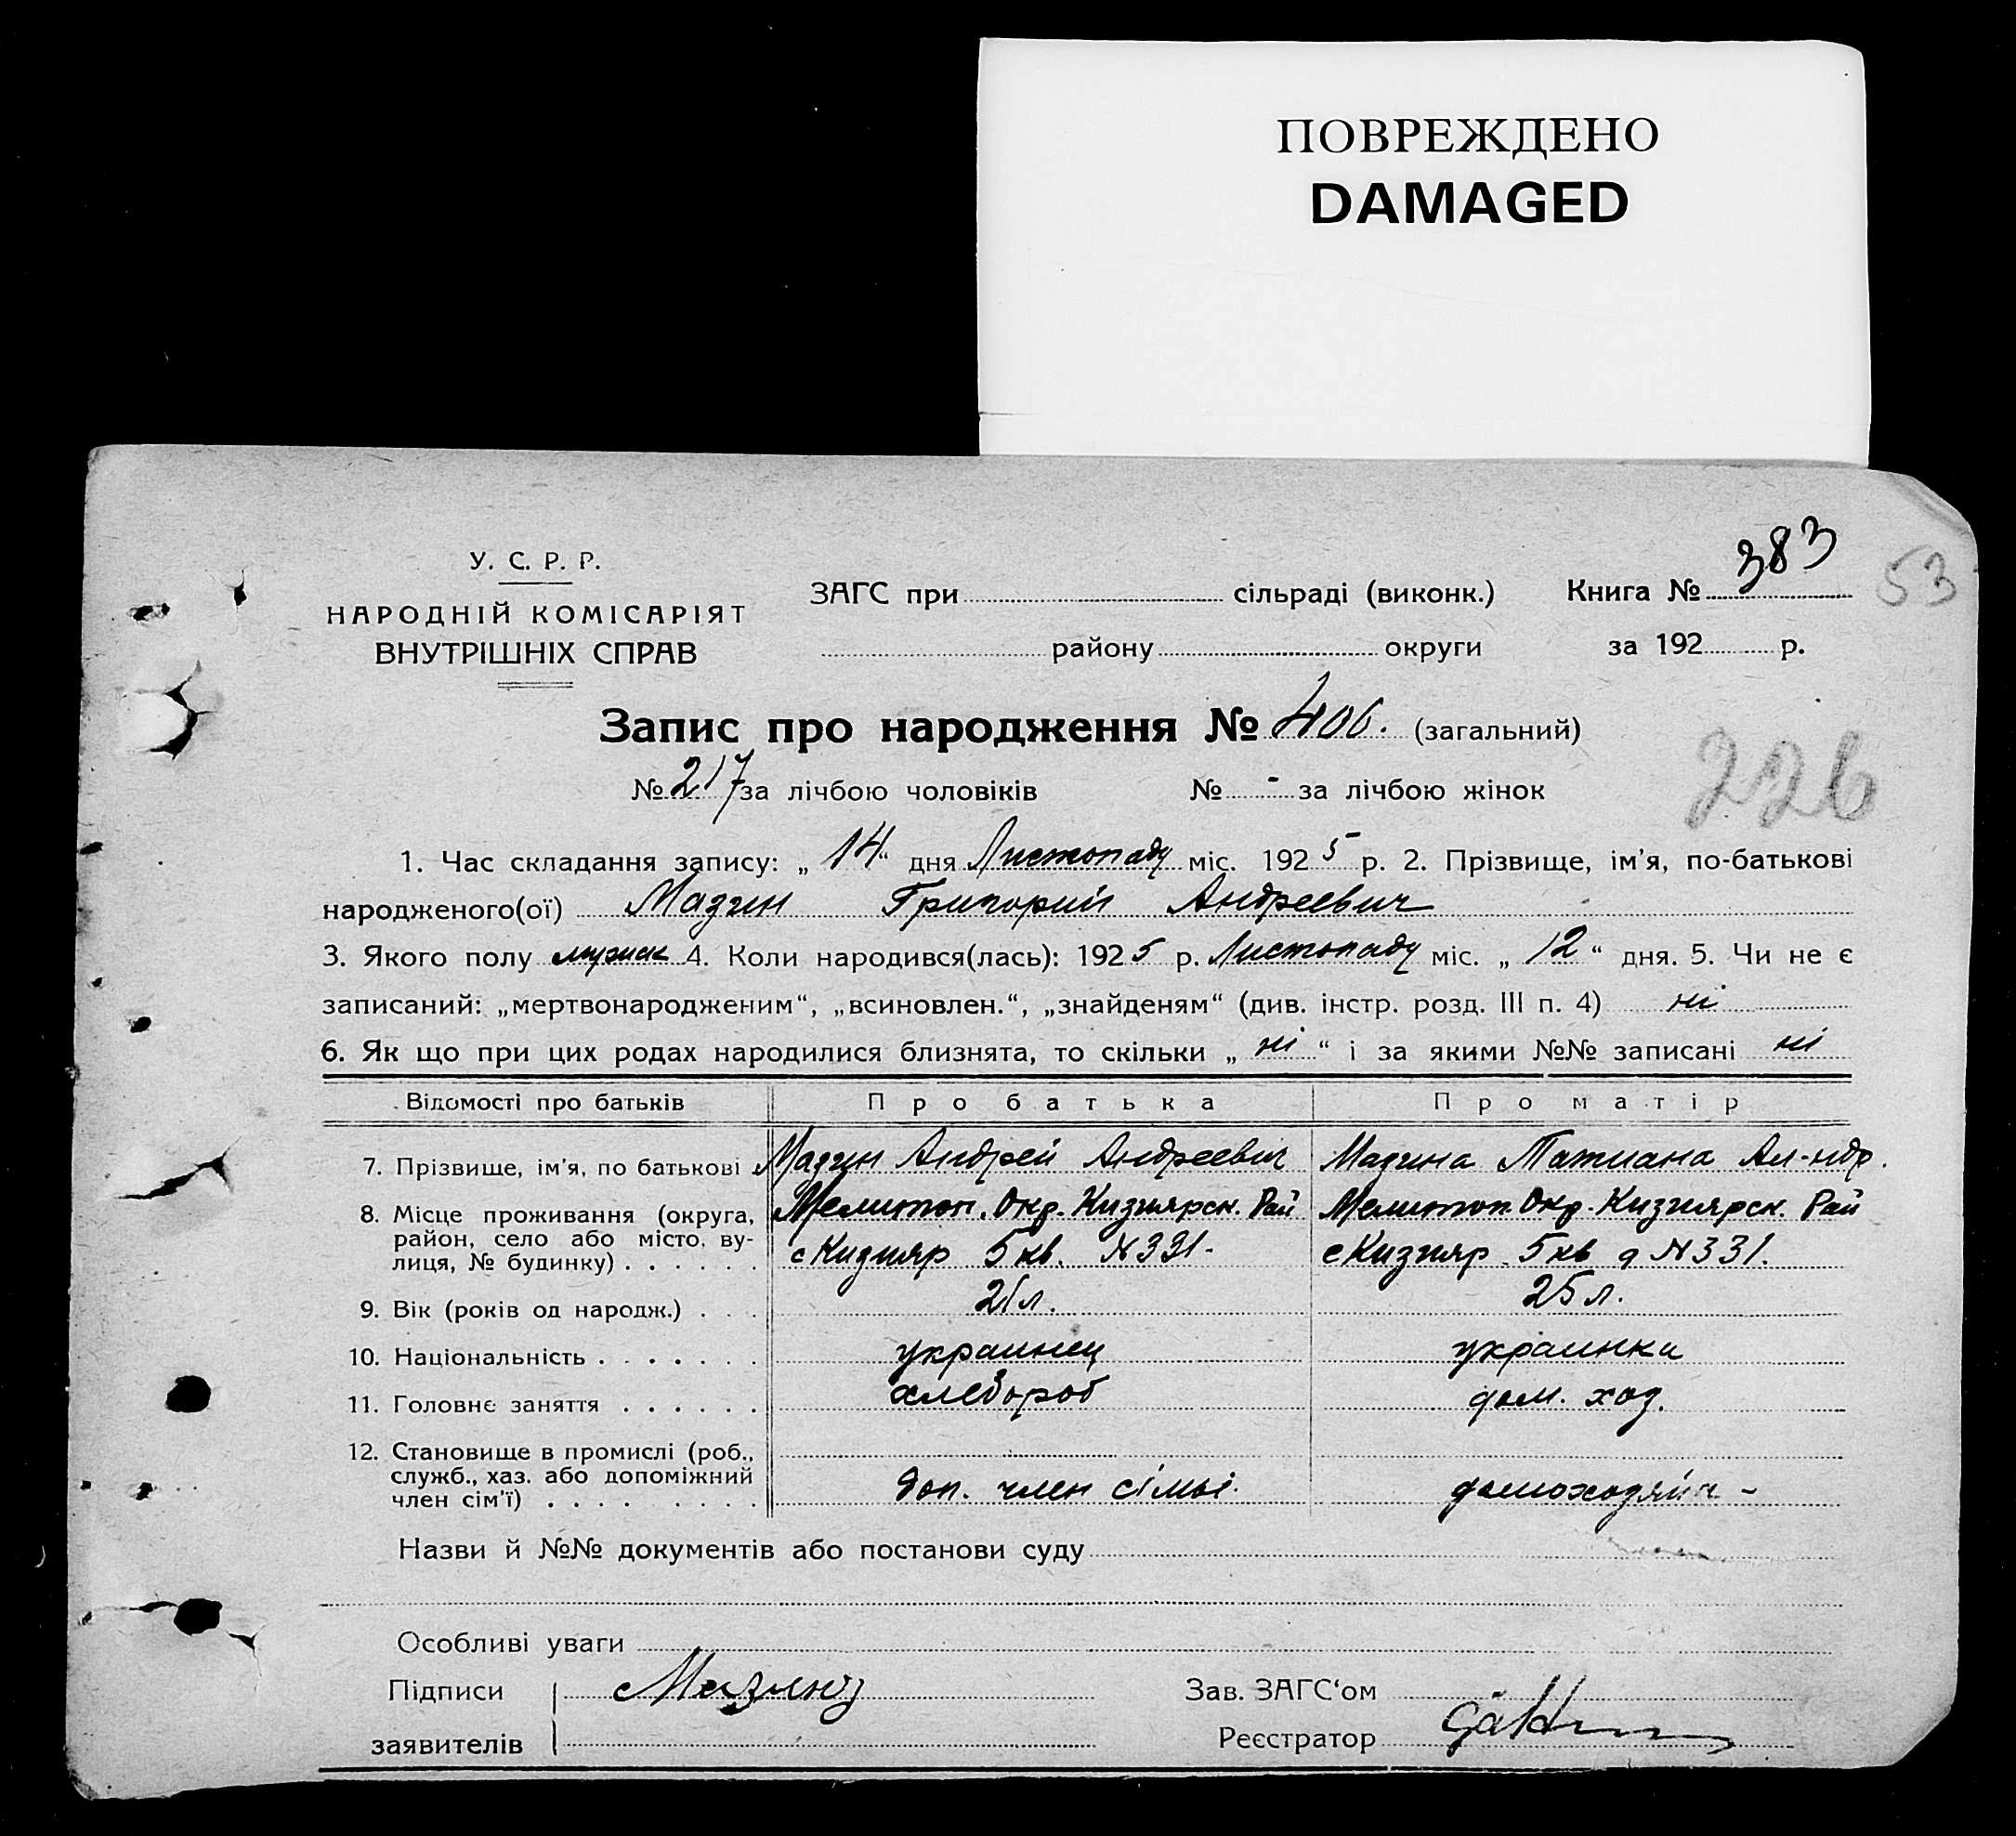 ПОВРЕЖДЕНО
DAMAGED
У. С. Р. Р.
НАРОДНІЙ КОМІСАРІЯТ
ВНУТРІШНІХ СПРАВ
ЗАГС при сільраді (виконк.)
району округи
Книга № 383
53
за 192 р.
Запис про народження № 406. (загальний)
№ 217 за лічбою чоловіків № - за лічбою жінок
226
1. Час складання запису: „ 14 “ дня Листопаду міс. 1925 р. 2. Прізвище, ім’я, по-батькові
народженого(ої) Мазин Григорий Андреевич
3. Якого полу мужск 4. Коли народився(лась): 1925 р. Листопаду міс. „ 12 “ дня. 5. Чи не є
записаний: „мертвонародженим“, „всиновлен.“, „знайденям“ (див. інстр. розд. III п. 4) ні
6. Як що при цих родах народилися близнята, то скільки „ ні “ і за якими №№ записані ні
Відомості про батьків Про батька Про матір
7. Прізвище, ім’я, по батькові Мазин Андрей Андреевич Мазина Татиана Ал-ндр.
8. Місце проживання (округа, Мелитоп. Окр. Кизиярск. Рай Мелитоп. Окр. Кизиярск. Рай
район, село або місто, ву-
лиця, № будинку) . . . . . . с Кизияр 5 кв. № 331- с Кизияр 5 кв д № 331.
9. Вік (років од народж.) . . . 21 л. 25 л.
10. Національність . . . . . . . украинец украинка
11. Головнє заняття . . . . . . хлебороб дом. хоз.
12. Становище в промислі (роб.,
служб., хаз. або допоміжний
член сім’ї) . . . . . . . . . доп. член сімьі.
Назви й №№ документів або постанови суду
Особливі уваги
Підписи Мазин Зав. ЗАГС‘ом
заявителів Реєстратор